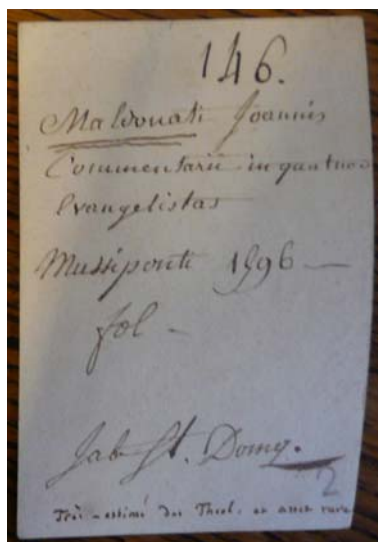 146.
Maldonati Joannis
Commentarii in quatuor
Evangelistas
Mussiponti 1596 —
fol —
Jab St. Domq.
2
Très-estimé des Théol. et assez rare